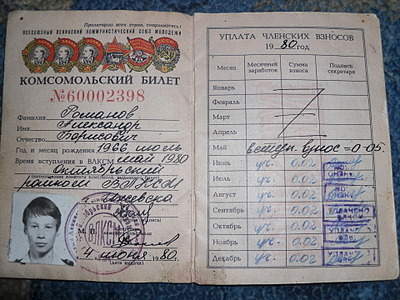 Пролетарии всех стран, соединяйтесь!
ВСЕСОЮЗНЫЙ ЛЕНИНСКИЙ КОММУНИСТИЧЕСКИЙ СОЮЗ МОЛОДЕЖИ
КОМСОМОЛЬСКИЙ БИЛЕТ
№60002398
Фамилия Романов
Имя Александр
Отчество Борисович
Год и месяц рождения 1966 июль
Время вступления в ВЛКСМ май 1980
Октябрьский
райком ВЛКСМ
Ижевска
ВЛКСМ
4 июня 1980.
(дата выдачи)
УПЛАТА ЧЛЕНСКИХ ВЗНОСОВ
19 80 год
Месяц Месячный заработок Сумма взноса Подпись секретаря
Январь
Февраль
Март
Апрель
Май вступ. взнос=0-05
Июнь уч. 0.02
Июль уч. 0.02
Август уч. 0.02
Сентябрь уч. 0.02 УПЛАЧЕНО
Октябрь уч. 0.02
Ноябрь уч. 0.02
Декабрь уч. 0.02